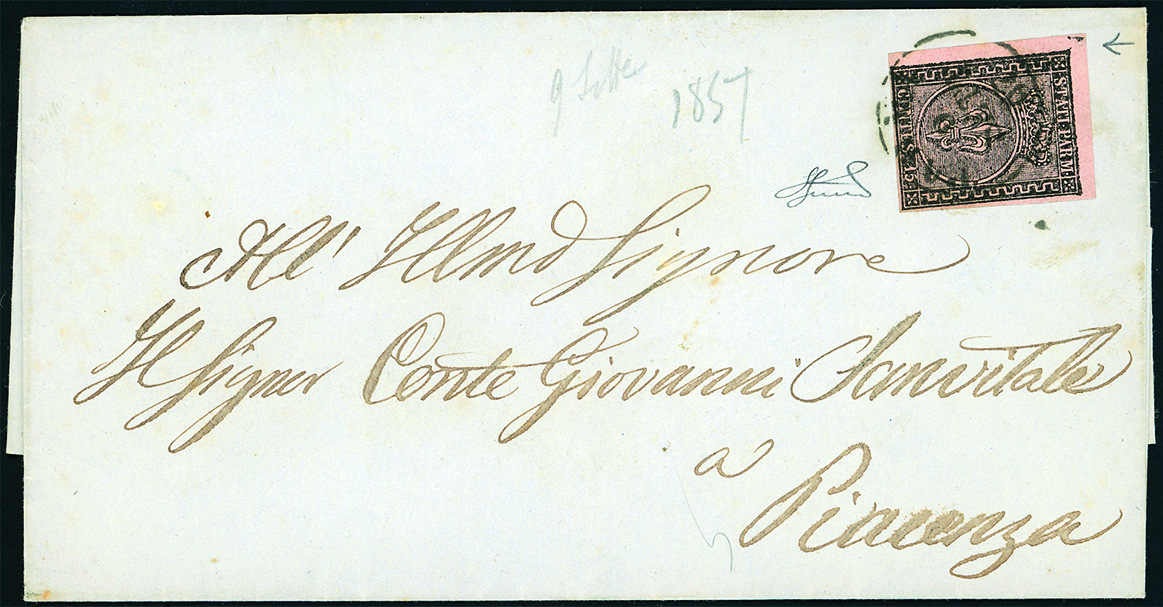 9 Sette
1857
STATI PARM.
CENTES. 15
All' Illmo Signore
Il Signor Conte Giovanni Sanvitale
a
Piacenza